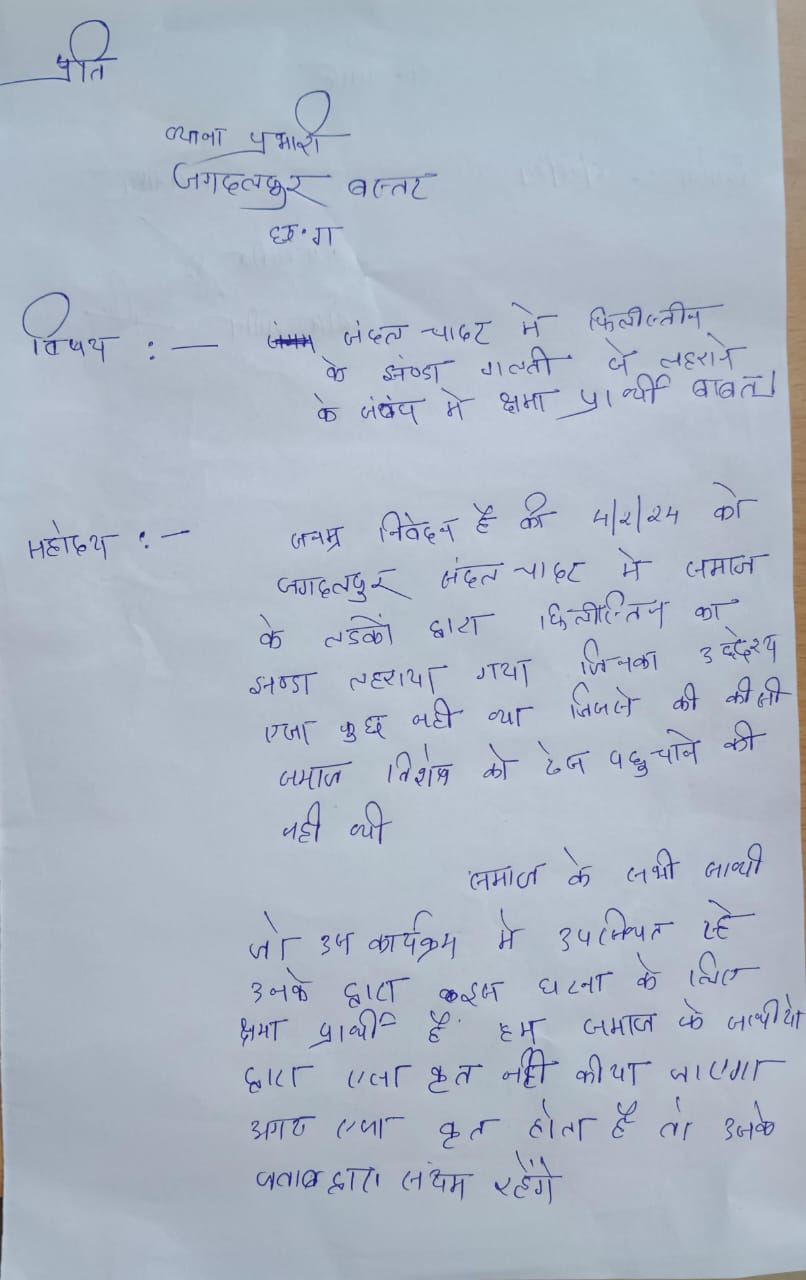 प्रति
थाना प्रभारी
जगदलपुर बस्तर
छ.ग
विषय :- संदल चादर मे फिलीस्तीन
के झण्डा गलती से लहराने
के संबंध मे क्षमा प्रार्थी बाबत।
महोदय :- सनम्र निवेदन है की 4/2/24 को
जगदलपुर संदल चादर मे समाज
के लडकों द्वारा फिलीस्तिन का
झण्डा लहराया गया जिनका उद्देश्य
एसा कुछ नही था जिससे की कीसी
समाज विशेष को ठेस पहुचाने की
नही थी
समाज के सभी साथी
जो उस कार्यक्रम मे उपस्थित रहे
उनके द्वारा इस घटना के लिए
क्षमा प्रार्थी है हम समाज के साथीयो
द्वारा एसा कृत नही कीया जाएगा
अगर एसा कृत होता है तो उसके
द्वारा रहेंगे